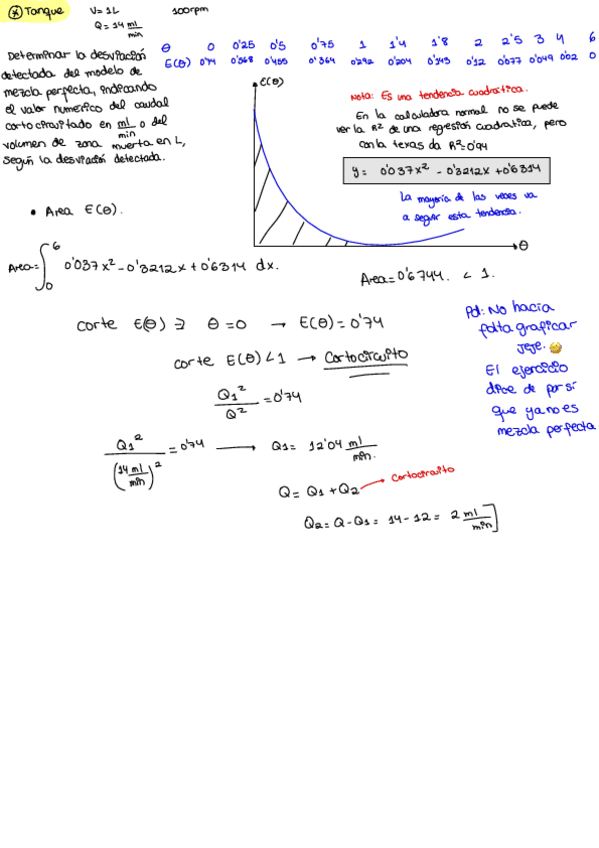 * Tanque V=1L 100rpm
Q=14 ml/min
Determinar la desviación
detectada del modelo de
mezcla perfecta, indicando
el valor numerico del caudal
cortocircuitado en ml/min o del
volumen de zona muerta en L,
según la desviación detectada.
θ 0 0'25 0'5 0'75 1 1'4 1'8 2 2'5 3 4 6
E(θ) 0'74 0'568 0'455 0'364 0'292 0'204 0'143 0'12 0'077 0'049 0'02 0
E(θ)
Nota: Es una tendencia cuadratica.
En la calculadora normal no se puede
ver la R² de una regresión cuadratica, pero
con la texas da R²=0'94
y= 0'037x² - 0'3212x + 0'6314
La mayoría de las veces va
a seguir esta tendencia.
θ
• Area E(θ).
Area= ∫₀⁶ 0'037x²-0'3212x+0'6314 dx.
Area=0'6744. < 1.
corte E(θ) ∋ θ=0 → E(θ)=0'74
corte E(θ)<1 → Cortocircuito
Q1²/Q² =0'74
Q1²/(14 ml/min)² =0'74 → Q1= 12'04 ml/min.
Q= Q1+Q2 → Cortocircuito
Q2= Q-Q1= 14-12= 2 ml/min]
Pd: No hacia
falta graficar
jeje. 😅
El ejercicio
dice de por sí
que ya no es
mezcla perfecta